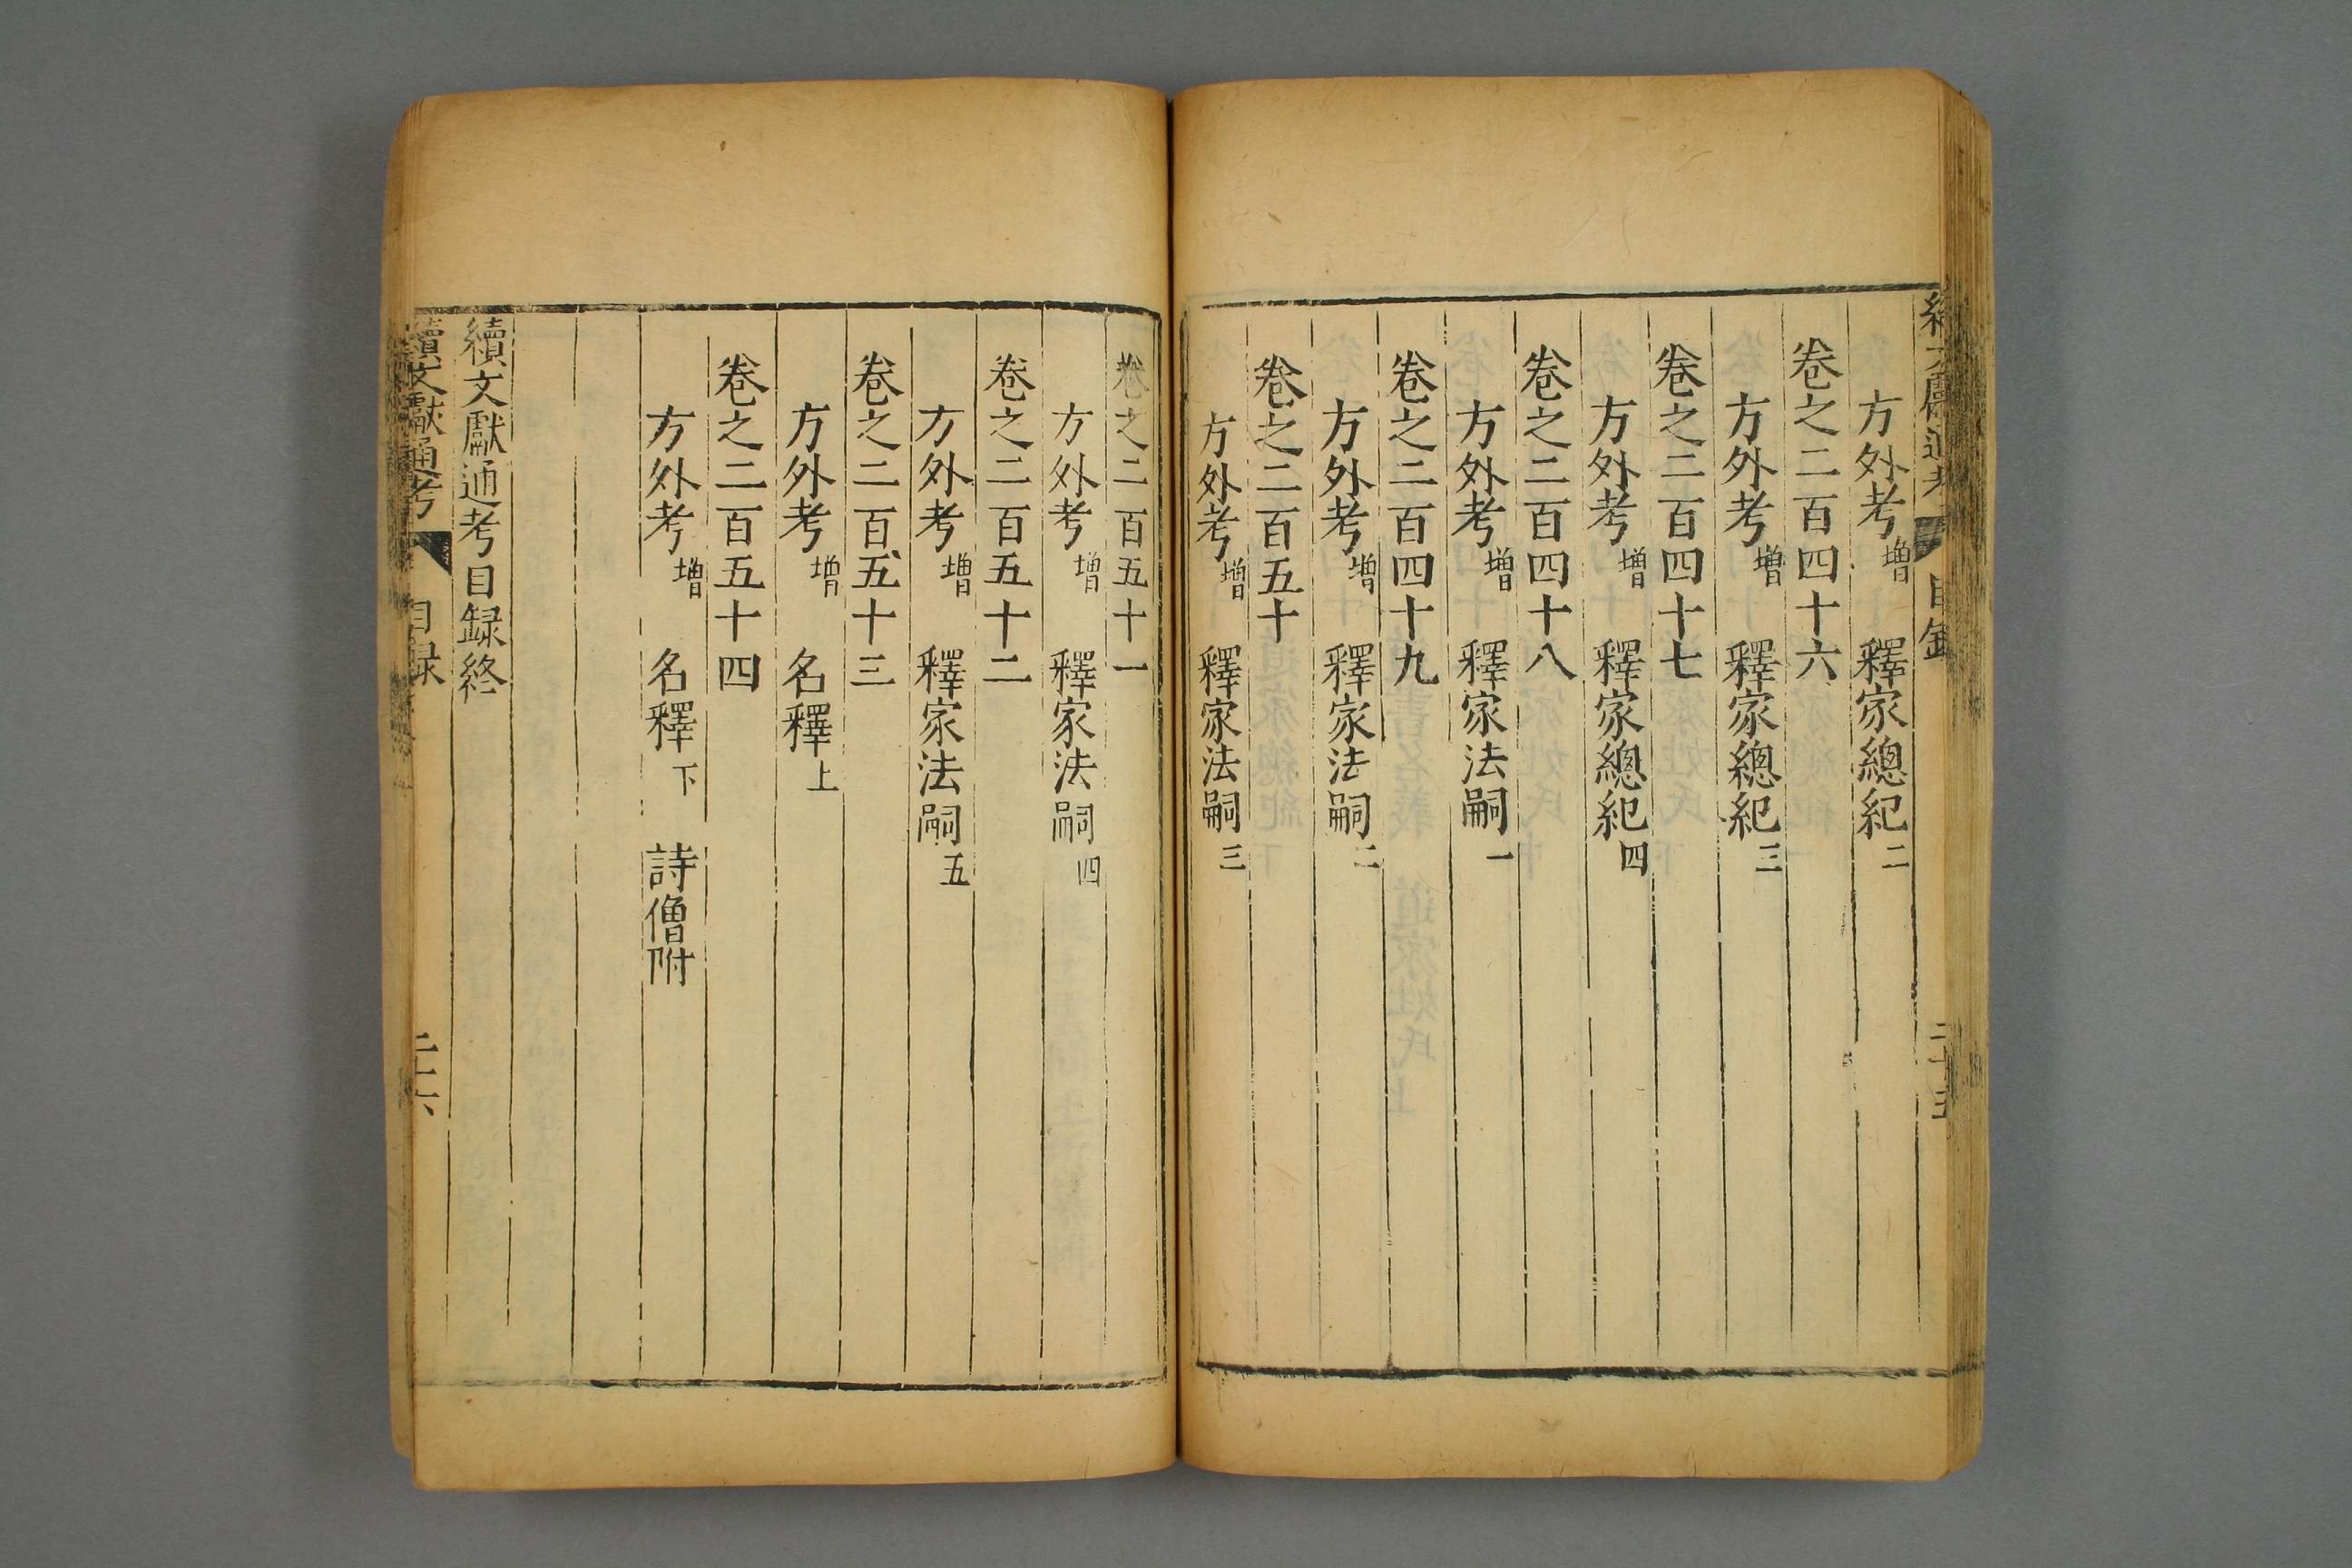 方外考增 釋家總紀二
卷之二百四十六
方外考增 釋家總紀三
卷之二百四十七
方外考增 釋家總紀四
卷之二百四十八
方外考增 釋家法嗣一
卷之二百四十九
方外考增 釋家法嗣二
卷之二百五十
方外考增 釋家法嗣三
卷之二百五十一
方外考增 釋家法嗣四
卷之二百五十二
方外考增 釋家法嗣五
卷之二百五十三
方外考增 名釋上
卷之二百五十四
方外考增 名釋下 詩僧附
續文獻通考目録終
續文獻通考 目録 二十六